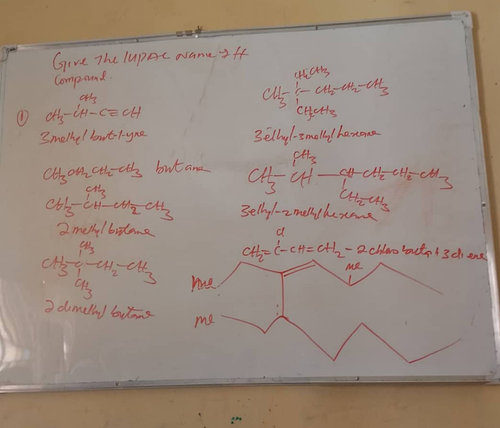 Give the IUPAC name of the
Compound
CH₃
① CH₃-CH-C≡CH
3methyl but-1-yne
CH₃CH₂CH₂-CH₃ butane
CH₃
CH₃-CH-CH₂-CH₃
2 methyl butane
CH₃
CH₃-C-CH₂-CH₃
CH₃
2 dimethyl butane
CH₂CH₃
CH₃-C-CH₂-CH₂-CH₃
CH₂CH₃
3ethyl-3methyl hexane
CH₃
CH₃-CH-CH-CH₂-CH₂-CH₃
CH₂CH₃
3ethyl-2methyl hexane
cl
CH₂=C-CH=CH₂ - 2 chloro buta 1 3 diene
me
me
me